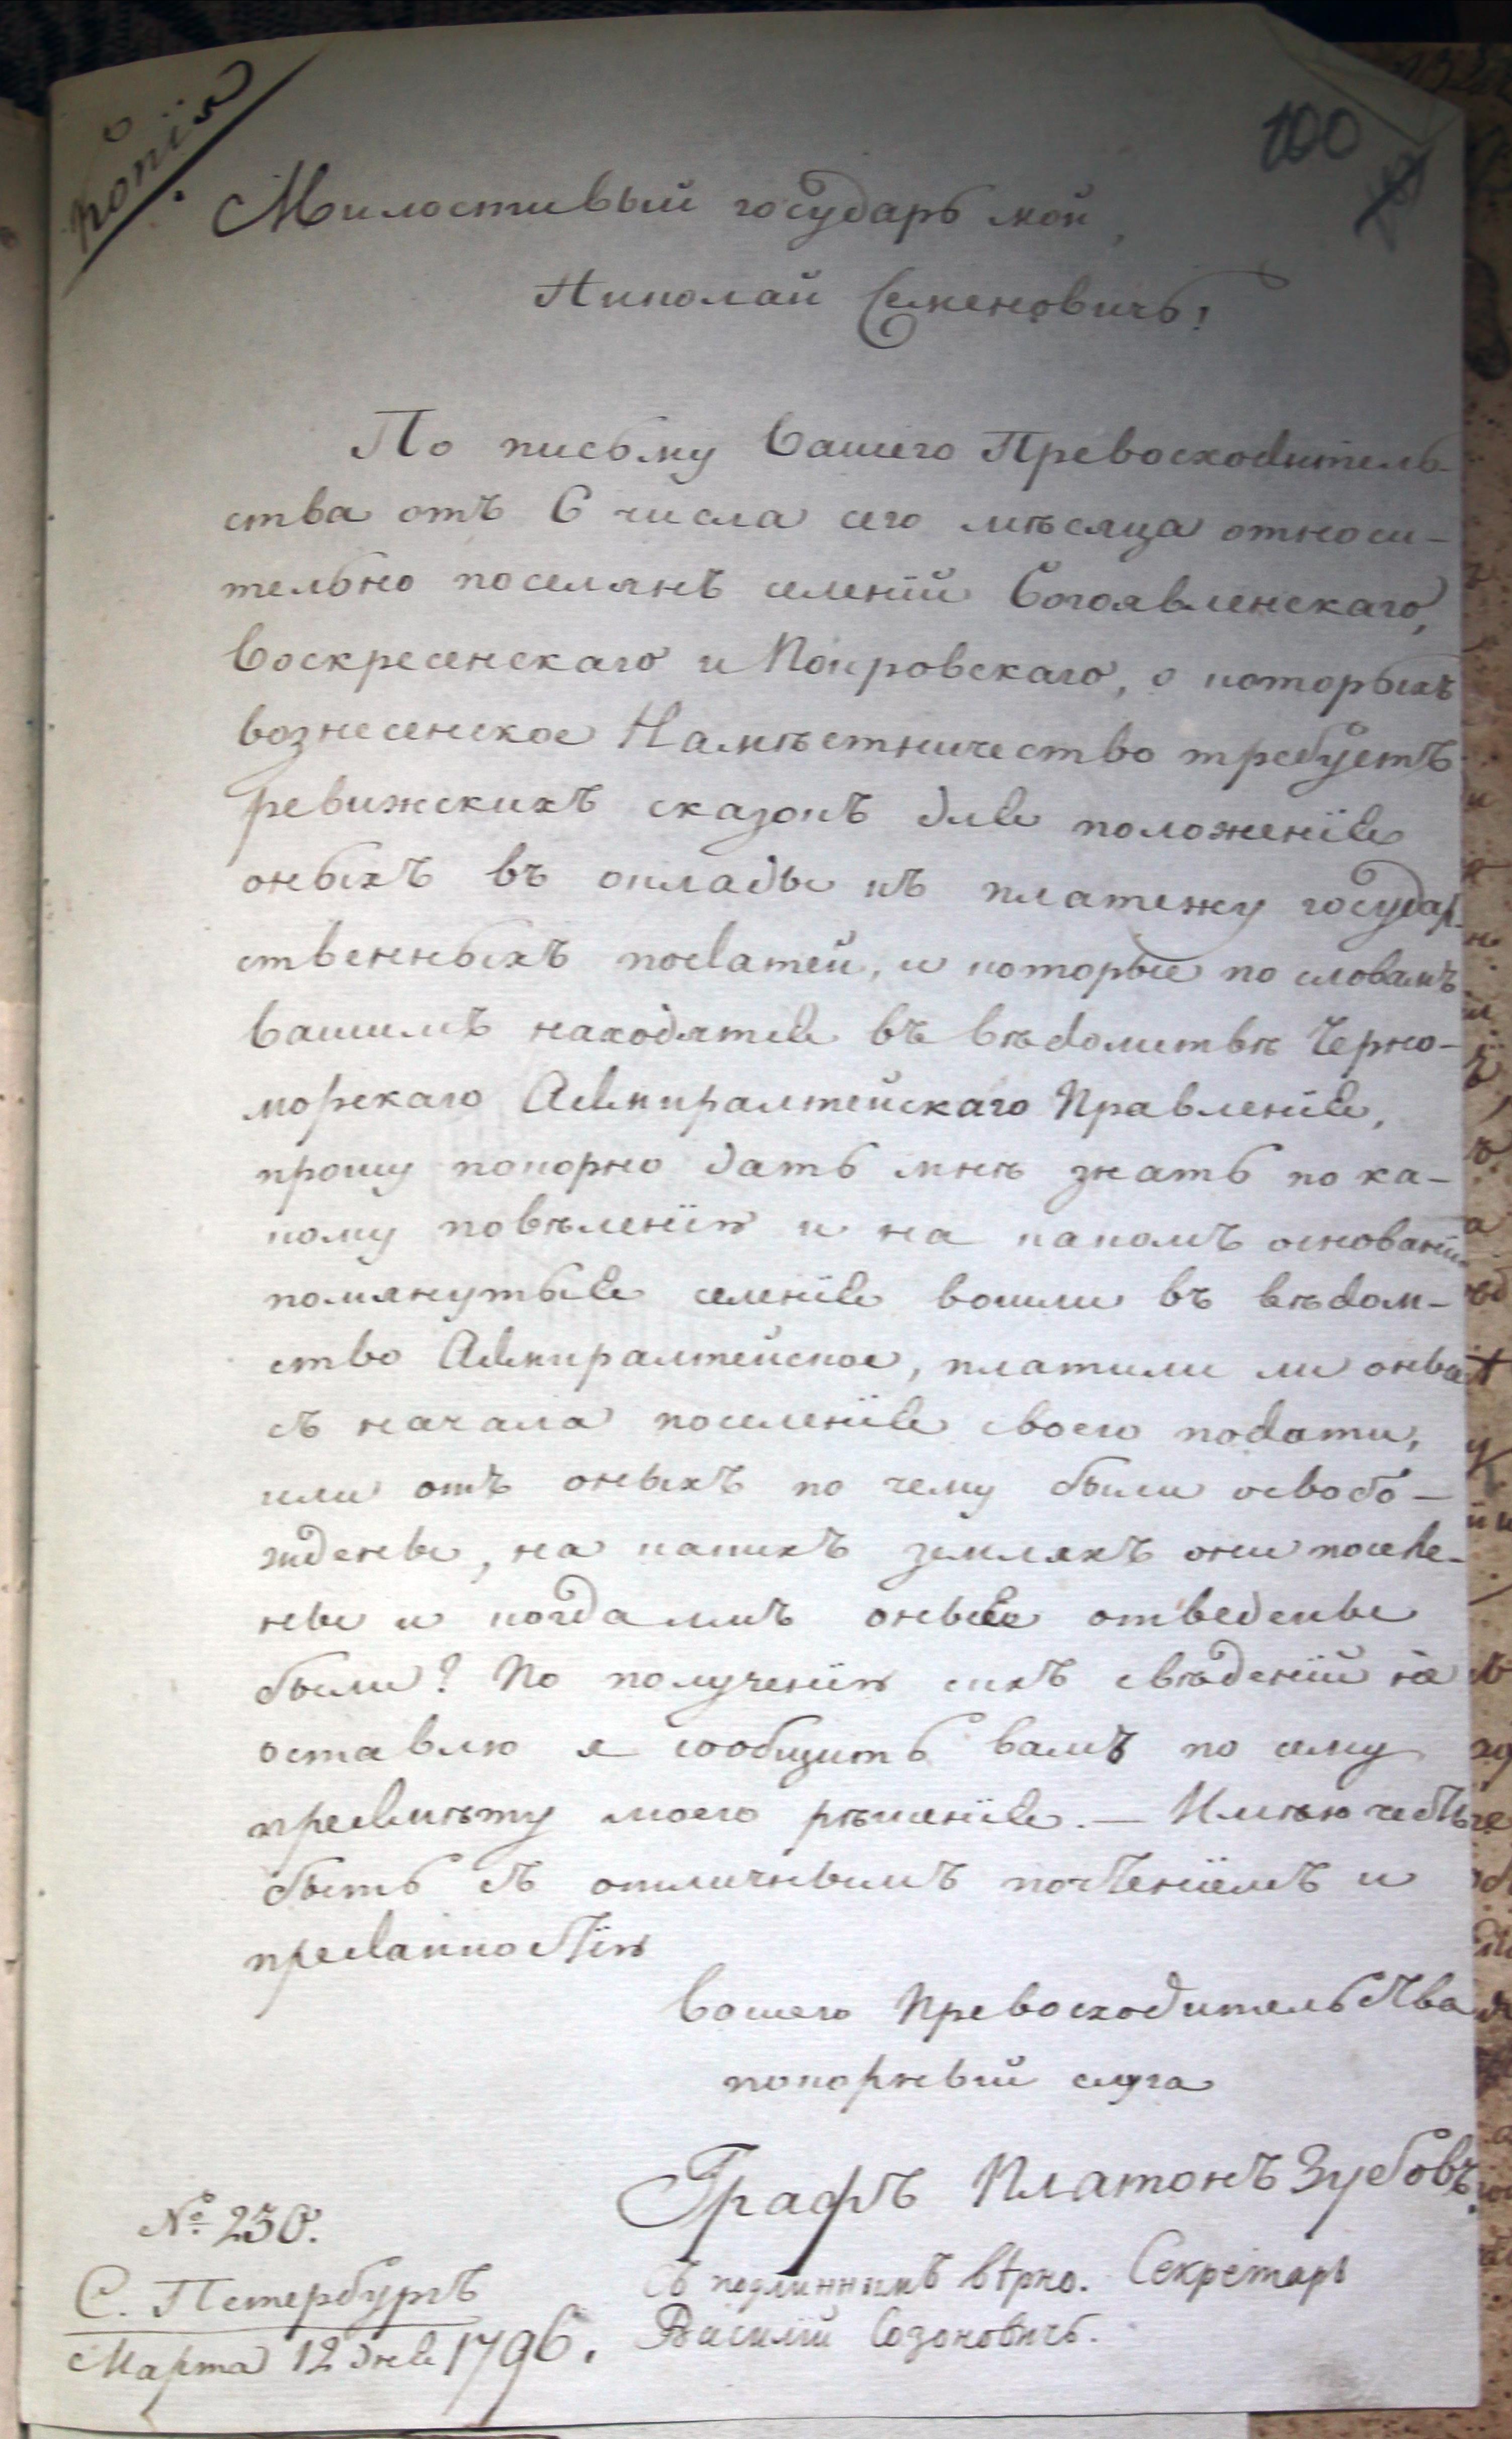 Копія
100
Милостивый государь мой,
Николай Семеновичь!
По письму вашего Превосходитель-
ства отъ 6 числа сего мѣсяца относи-
тельно поселянъ селеній Богоявленскаго,
Воскресенскаго и Покровскаго, о которыхъ
вознесенское Намѣстничество требуетъ
ревижскихъ сказокъ для положенія
оныхъ въ оклады къ платежу государ-
ственныхъ податей, и которые по словамъ
вашимъ находятся въ вѣдомствѣ Черно-
морскаго Адмиралтейскаго Правленія,
прошу покорно дать мнѣ знать по ка-
кому повѣленію и на какомъ основаніи
помянутыя селенія вошли въ вѣдом-
ство Адмиралтейское, платили ли оныя
съ начала поселенія своего подати,
или отъ оныхъ по чему были освобо-
ждены, на какихъ земляхъ они поселе-
ны и когда имъ оныя отведены
были? По полученіи сихъ свѣденій не
оставлю я сообщить вамъ по сему
предмѣту моего рѣшенія. – Имѣю честь
быть съ отличнымъ почтеніемъ и
преданностію
вашего Превосходительства
покорный слуга
Графъ Платонъ Зубовъ.
№ 230.
С. Петербургъ
Марта 12 дня 1796.
Съ подлиннымъ вѣрно. Секретарь
Василій Созоновичь.